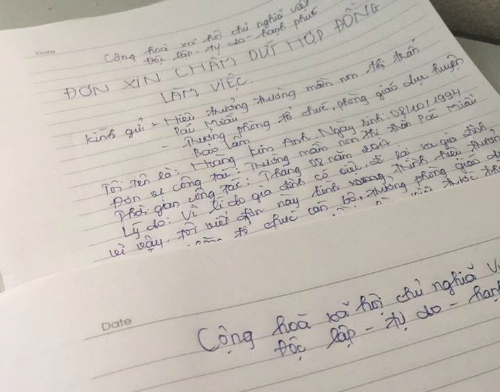 Date
Cộng hoà xã hội chủ nghĩa việt
Độc lập - tự do - hạnh phúc
ĐƠN XIN CHẤM DỨT HỢP ĐỒNG
LÀM VIỆC.
Kính gửi - Hiệu trưởng trường mầm non thị trấn
Pác Miầu
- Trưởng phòng tổ chức, phòng giáo dục huyện
Bảo Lâm
Tôi tên là: Kim Anh. Ngày sinh: 08/10/1994
Đơn vị công tác: Trường mầm non thị trấn Pác Miầu
Thời gian công tác: Tháng 02 năm 2017
Lý do: Vì lí do gia đình có việc, đi lại xa gia đình,
vì vậy, tôi viết đơn này kính mong hiệu trưởng
tổ chức cán bộ, trưởng phòng giáo dục
việc
Date
Cộng hoà xã hội chủ nghĩa V
Độc lập - tự do - hạnh